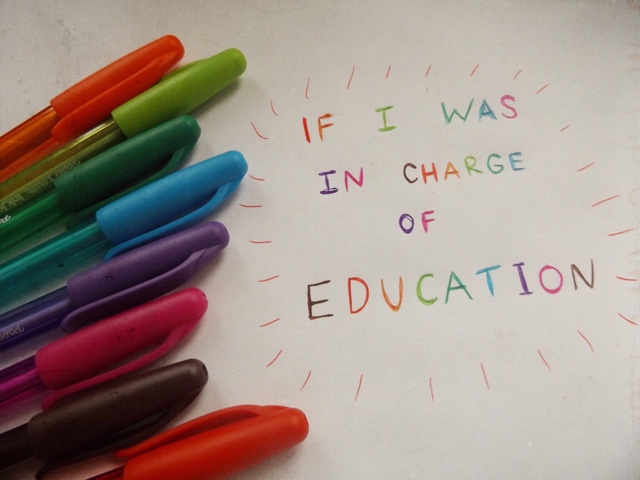 IF I WAS
IN CHARGE
OF
EDUCATION